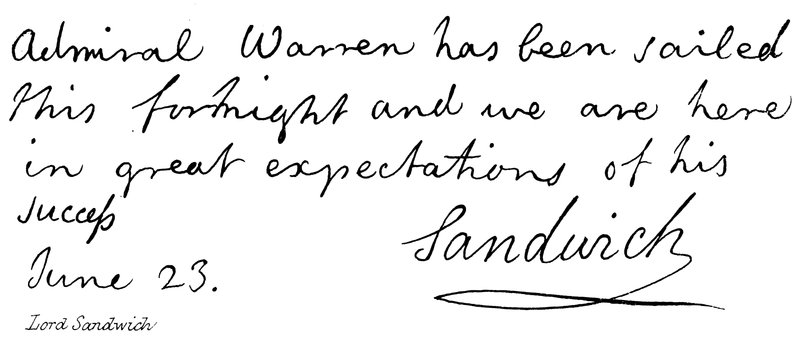 Admiral Warren has been sailed
this fortnight and we are here
in great expectations of his
success
Sandwich
June 23.
Lord Sandwich